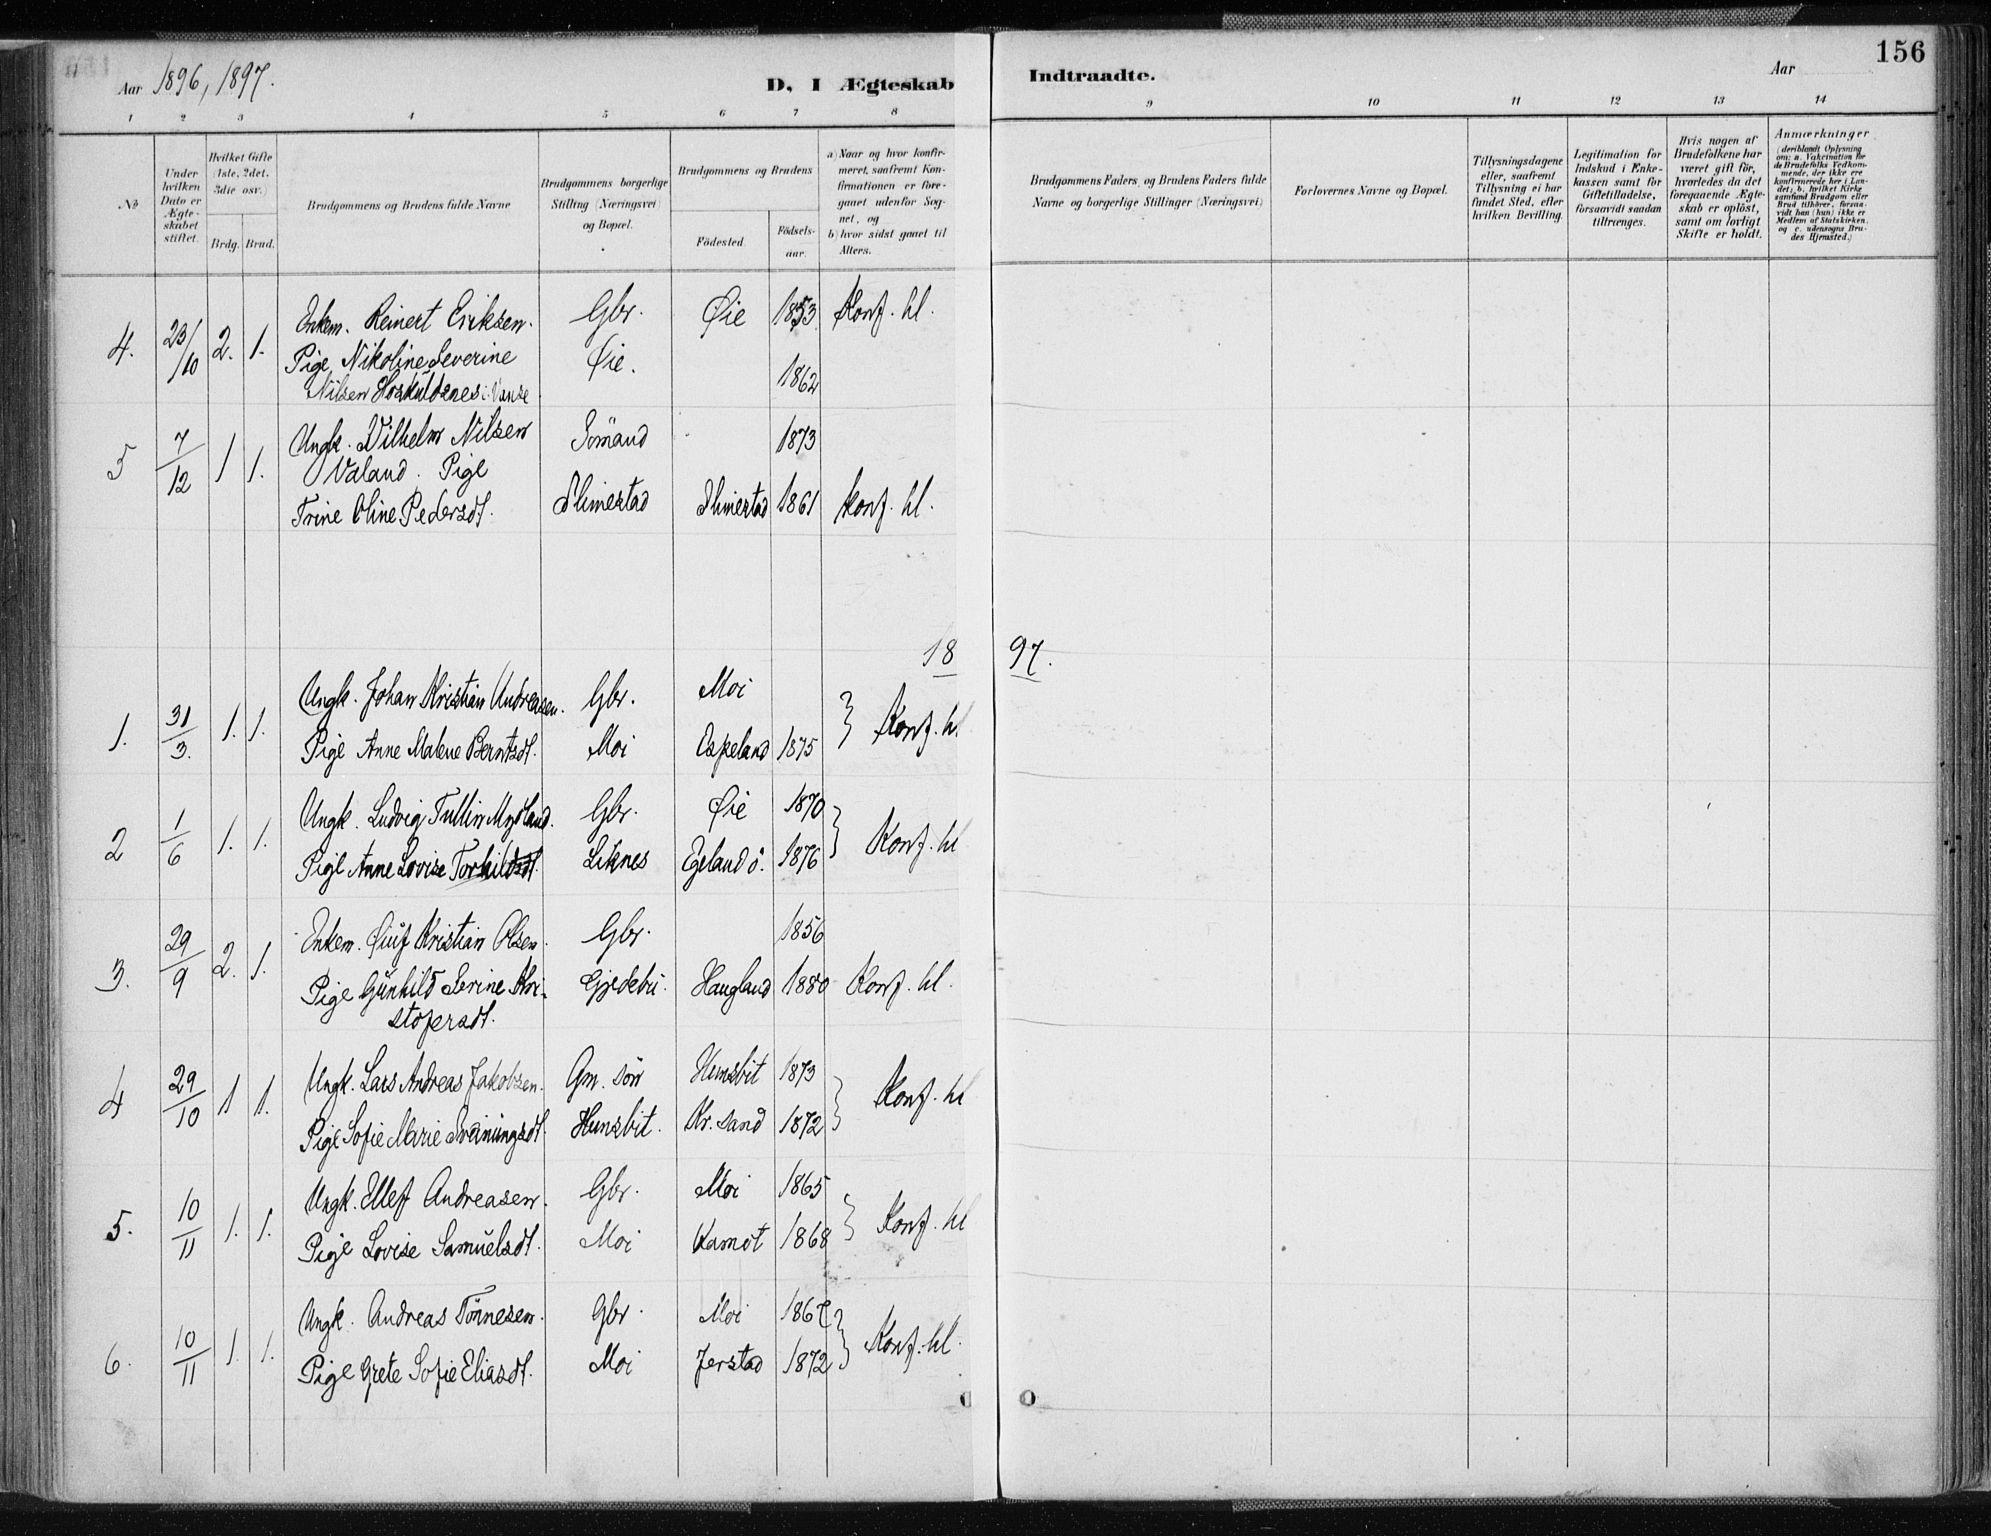 156
Aar 1896, 1897.
D. I Ægteskab Indtraadte.
Aar
1 2 3 4 5 6 7 8 9 10 11 12 13 14
No
Under hvilken Dato er Ægteskabet stiftet.
Hvilket Gifte (1ste, 2det, 3die osv.)
Brdg. Brud.
Brudgommens og Brudens fulde Navne
Brudgommens borgerlige Stilling (Næringsvei) og Bopæl.
Brudgommens og Brudens
Födested.
Födselsaar.
a) Naar og hvor konfirmeret, saafremt Konfirmationen er foregaaet udenfor Sognet, og
b) hvor sidst gaaet til Alters.
Brudgommens Faders og Brudens Faders fulde Navne og borgerlige Stillinger (Næringsvei)
Forlovernes Navne og Bopæl.
Tillysningsdagene eller, saafremt Tillysning ei har fundet Sted, efter hvilken Bevilling.
Legitimation for Indskud i Enkekassen samt for Giftetilladelse, forsaavidt saadan tiltrænges.
Hvis nogen af Brudefolkene har været gift för, hvorledes da det foregaaende Ægteskab er oplöst, samt om lovligt Skifte er holdt.
Anmærkninger (deriblandt Oplysning om: a. Vakcination for de Brudefolks Vedkommende, der ikke ere konfirmerede her i Landet; b. hvilket Kirkesamfund Brudgom eller Brud tilhører, forsaavidt han (hun) ikke er Medlem af Statskirken, og c. udensogns Brudes Hjemsted.)
4. 23/10 2. 1. Enkem. Reinert Eriksen. Gbr. Øie 1853 Konf. hl.
Pige Nikoline Severine Øie. 1862
Nilsen Hoskuldsnes i Vanse
5 7/12 1 1. Ungk. Vilhelm Nilsen Sömand 1873
Valand. Pige
Trine Oline Pedersdt. Slimestad Slimestad 1861 konf. hl.
1897.
1. 31/3. 1. 1. Ungk. Johan Kristian Andreasen. Gbr. Moi
Pige Anne Malene Berntsdt. Moi Espeland 1875 Konf. hl
2 1/6 1. 1. Ungk. Ludvig Tullin Mydland. Gbr. Øie 1870
Pige Anne Lovise Torkildsdt. Liknes Egeland ö. 1876 Konf. hl
3. 29/9 2. 1. Enkem. Kristian Olsen. Gbr. 1856
Pige Gunhild Serine Kri- Gjedebu. Haugland 1880 Konf. hl.
stofersdt.
4 29/10 1 1. Ungk. Lars Andreas Jakobsen. Gm. sön Hunsbit 1873
Pige Sofie Marie Svänungsdt. Hunsbit. Kr. sand 1872 Konf. hl
5. 10/11 1. 1. Ungk. Ellef Andreasen. Gbr. Moi 1865
Pige Lovise Samuelsdt. Moi 1868 Konf. hl
6. 10/11 1. 1. Ungk. Andreas Tönnesen. Gbr. Moi 1867
Pige Grete Sofie Eliasdt. Moi Jerstad 1872 Konf. hl.